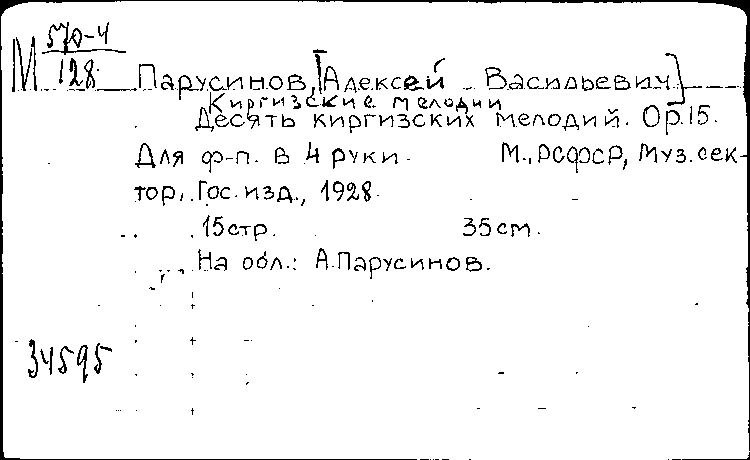 М 570-4
128
Парусинов, [Алексей Васильевич]
Киргизские мелодии
Десять киргизских мелодий. Op.15.
Для ф-п. в 4 руки. М., РСФСР, Муз.сек-
тор, Гос.изд., 1928.
15стр. 35см.
На обл.: А.Парусинов.
34595